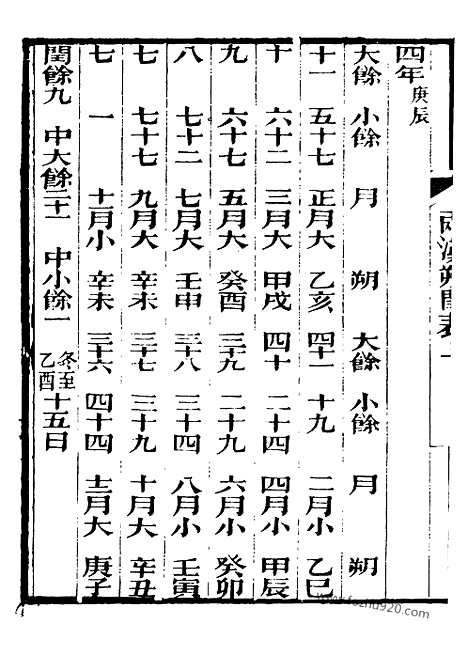 兩漢朔閏表 一
四年 庚辰
大餘 小餘 月 朔 大餘 小餘 月 朔
十一 五十七 正月大 乙亥 四十一 十九 二月小 乙巳
十 六十二 三月大 甲戌 四十 二十四 四月小 甲辰
九 六十七 五月大 癸酉 三十九 二十九 六月小 癸卯
八 七十二 七月大 壬申 三十八 三十四 八月小 壬寅
七 七十七 九月大 辛未 三十七 三十九 十月大 辛丑
七 一 十一月小 辛未 三十六 四十四 十二月大 庚子
閏餘九 中大餘二十一 中小餘一 冬至乙酉 十五日
www.fozhu920.com